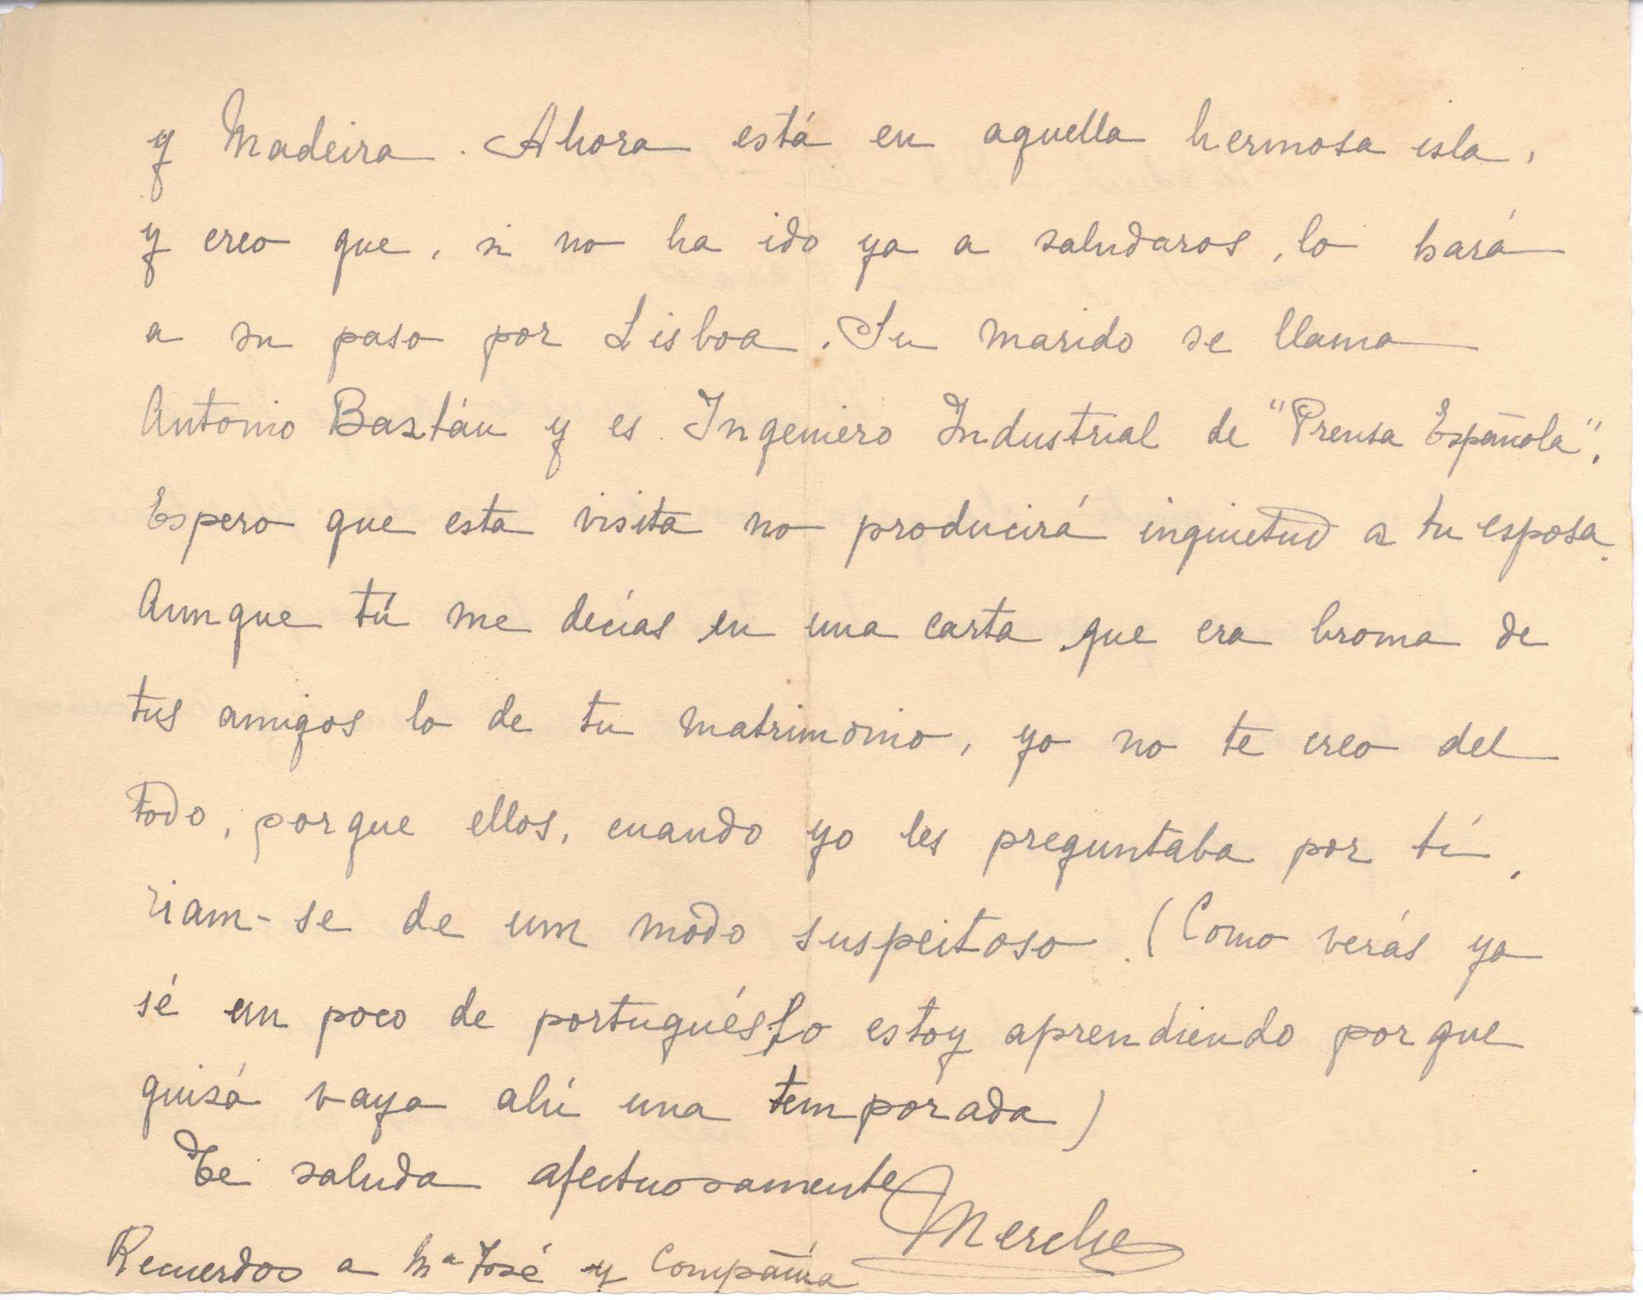 y Madeira. Ahora está en aquella hermosa isla,
y creo que, si no ha ido ya a saludaros, lo hará
a su paso por Lisboa. Su marido se llama
Antonio Baztán y es Ingeniero Industrial de "Prensa Española".
Espero que esta visita no producirá inquietud a tu esposa.
Aunque tú me decías en una carta que era broma de
tus amigos lo de tu matrimonio, yo no te creo del
todo, porque ellos, cuando yo les preguntaba por tí,
riam-se de um modo suspeitoso. (Como verás ya
sé un poco de portugués, lo estoy aprendiendo porque
quizá vaya ahí una temporada)
Te saluda afectuosamente
Merche
Recuerdos a Mª José y Compañía